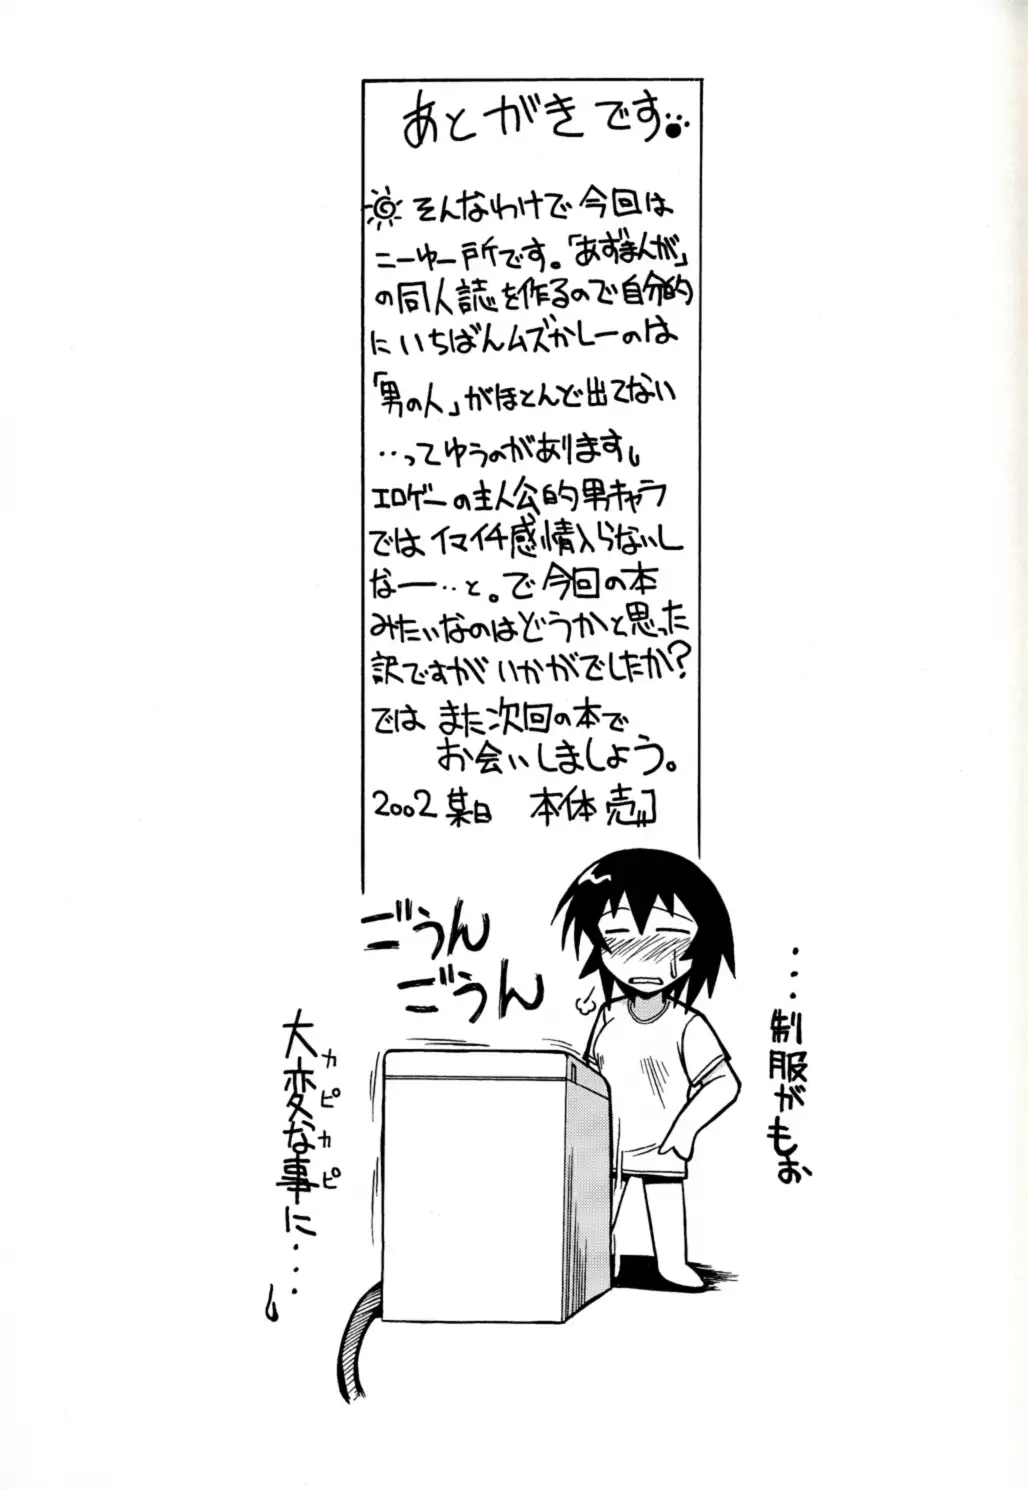 あとがきです
そんなわけで今回は
こーゆー所です。「あずまんが」
の同人誌を作るので自分的
にいちばんムズかしーのは
「男の人」がほとんど出てない
‥ってゆうのがあります。
エロゲーの主人公的男キャラ
ではイマイチ感情入らないし
なー‥と。で今回の本
みたいなのはどうかと思った
訳ですがいかがでしたか?
では また次回の本で
お会いしましょう。
2002 某日 本体 売
ごうん
ごうん
...制服がもお
大変な事に...
カピカピ